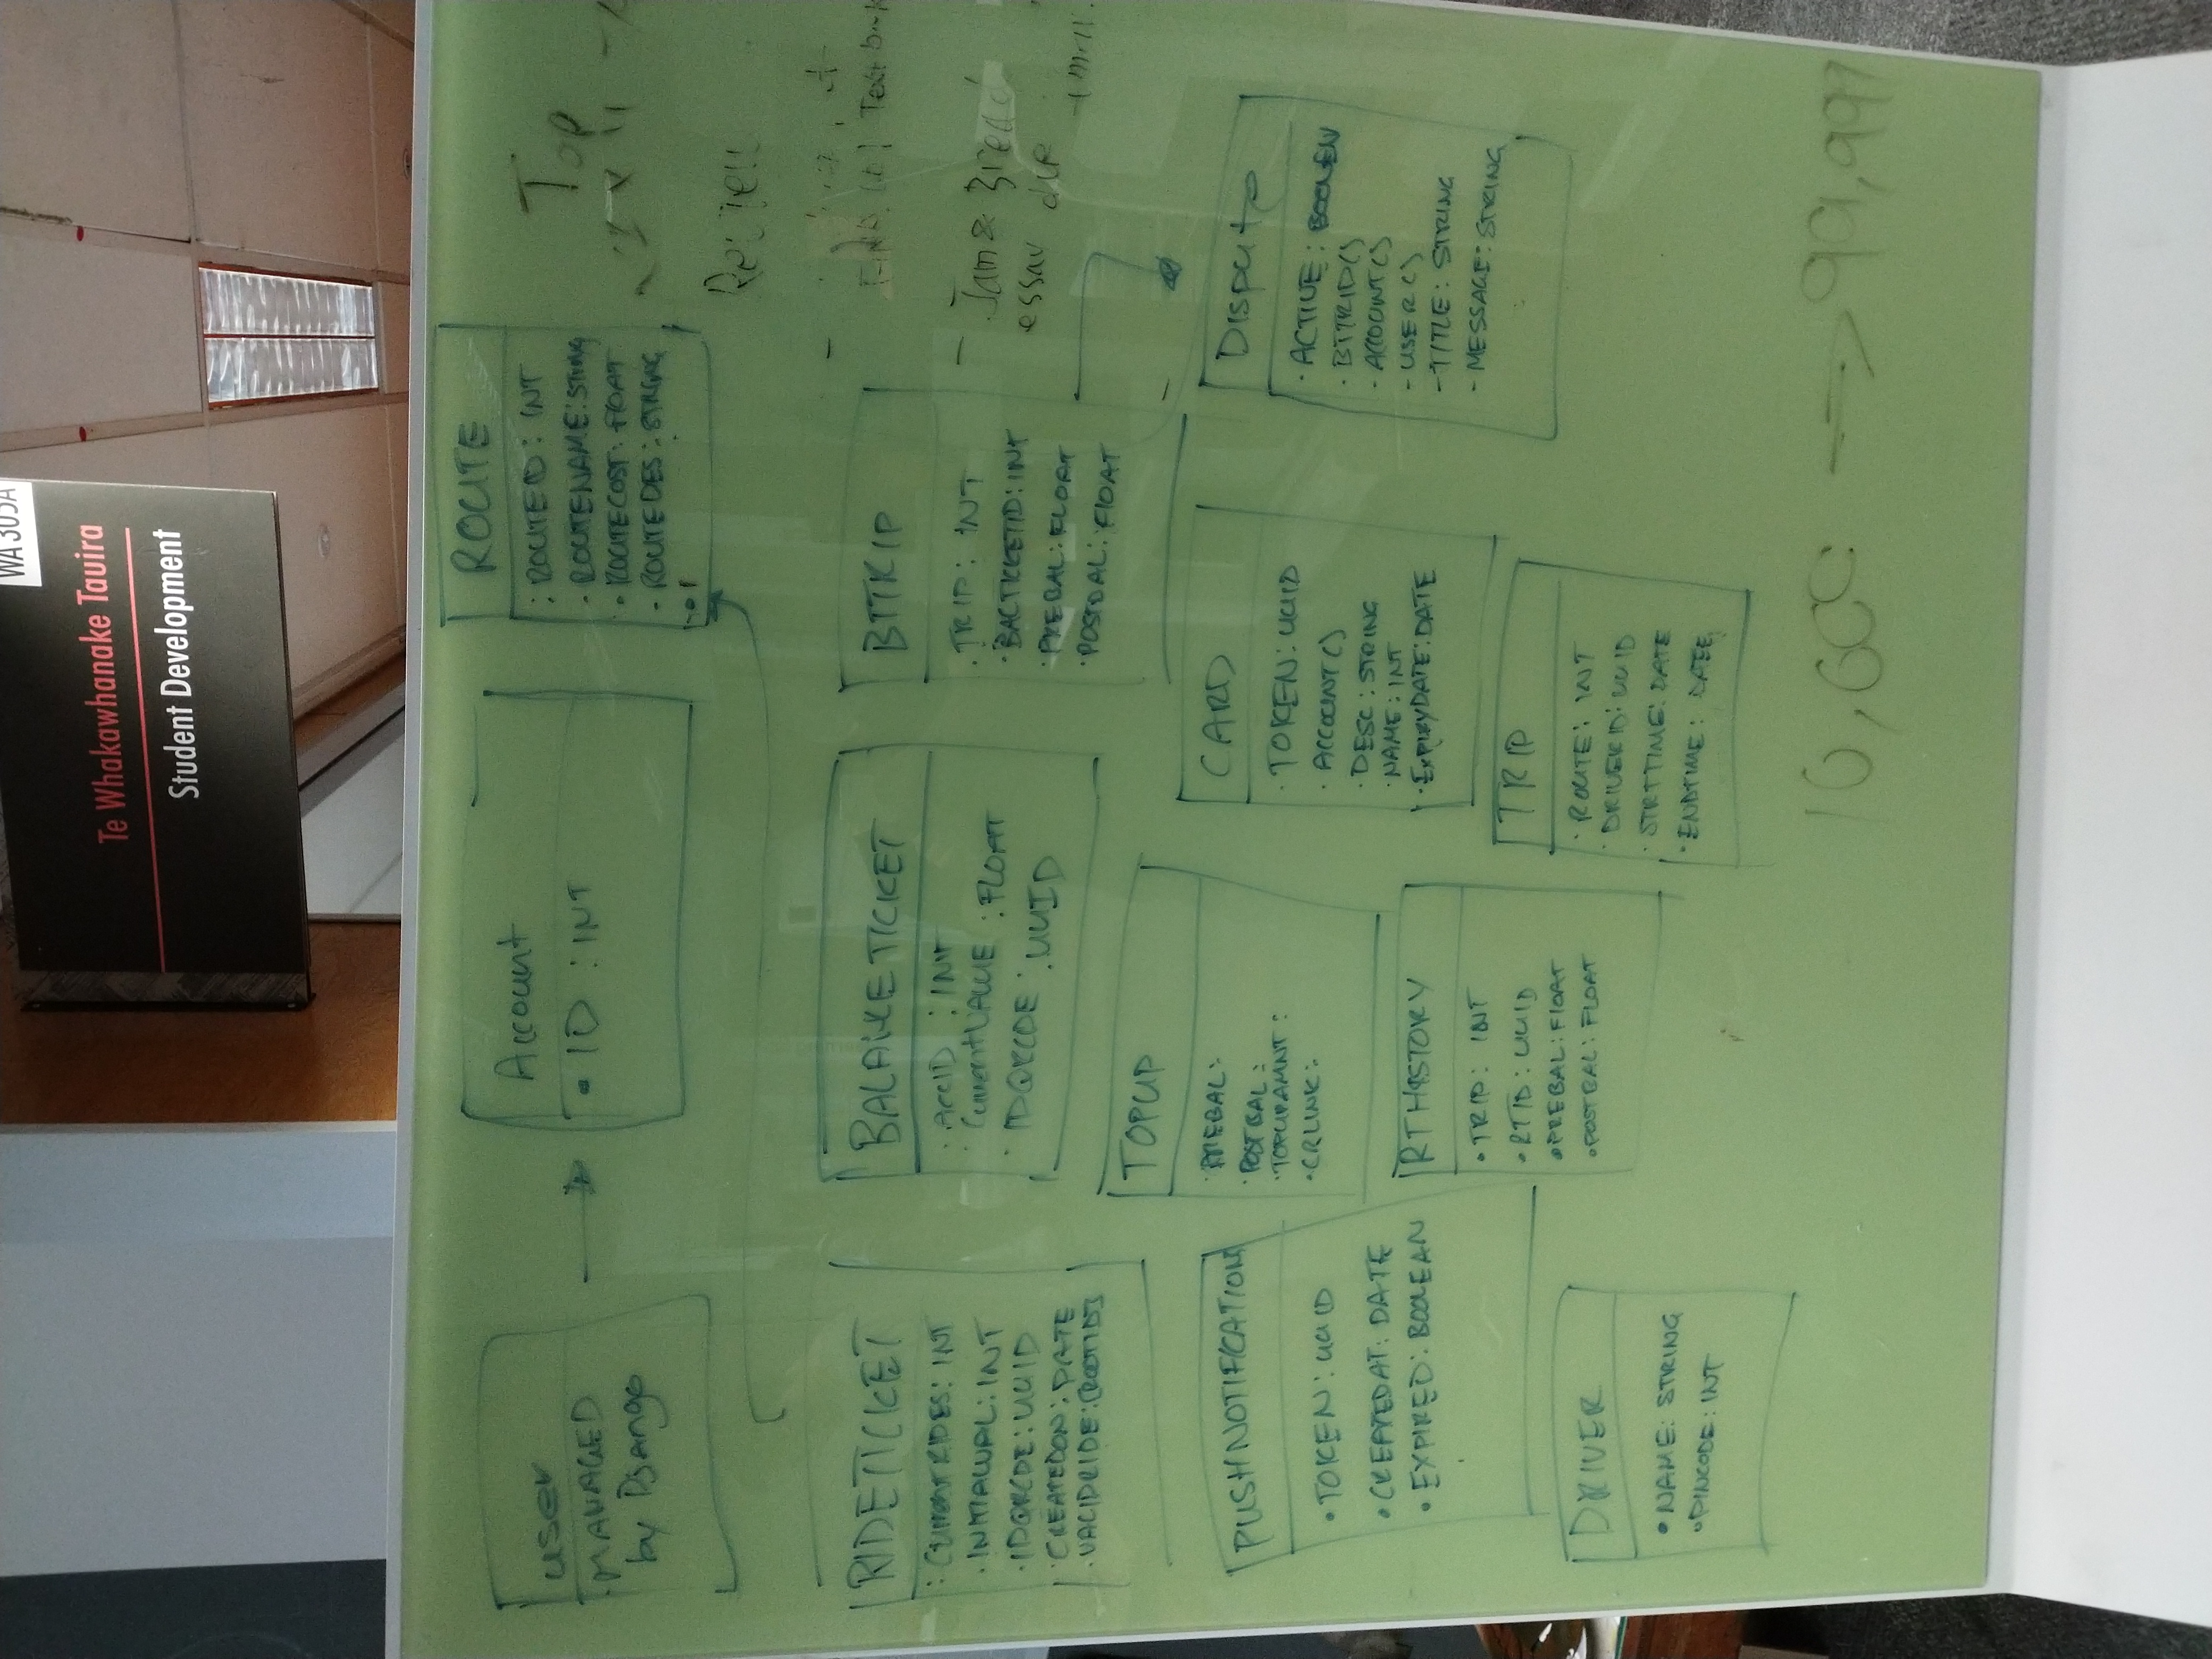 WA 305A
Te Whakawhanake Tauira
Student Development
user
MANAGED
by Django
Account
• ID : INT
ROUTE
: ROUTEID : INT
- ROUTENAME: STRING
• ROUTECOST: FLOAT
- ROUTEDES: STRING
Top
Review
RIDETICKET
: CURRENTRIDES: INT
. INITIALVAL: INT
. IDQRCDE: UUID
. CREATEDON: DATE
. VALIDRIDE: [ROOTIDS]
BALANCETICKET
. AccID : INT
. CurrentVALUE : FLOAT
. IDQRCDE : UUID
BTTRIP
. TRIP: INT
. BACTICKETID: INT
. PREBAL: FLOAT
. POSTBAL: FLOAT
Text book
- Jam & Bread
essay due
TOPUP
. PREBAL:
. POSTBAL:
. TOPUPAMNT:
. CRLINK:
PUSHNOTIFICATION
• TOKEN: UUID
• CREATEDAT: DATE
• EXPIRED: BOOLEAN
CARD
. TOKEN: UUID
. ACCOUNT()
. DESC: STRING
. NAME: INT
. EXPIRYDATE: DATE
Dispute
. ACTIVE: BOOLEN
. BTTRID()
- ACCOUNT()
- USER()
- TITLE: STRING
- MESSAGE: STRING
RTHISTORY
• TRIP: INT
• RTID: UUID
• PREBAL: FLOAT
• POSTBAL: FLOAT
TRIP
. ROUTE: INT
. DRIVERID: UUID
. STRTTIME: DATE
. ENDTIME: DATE
DRIVER
• NAME: STRING
• PINCODE: INT
10,000 → 99,999